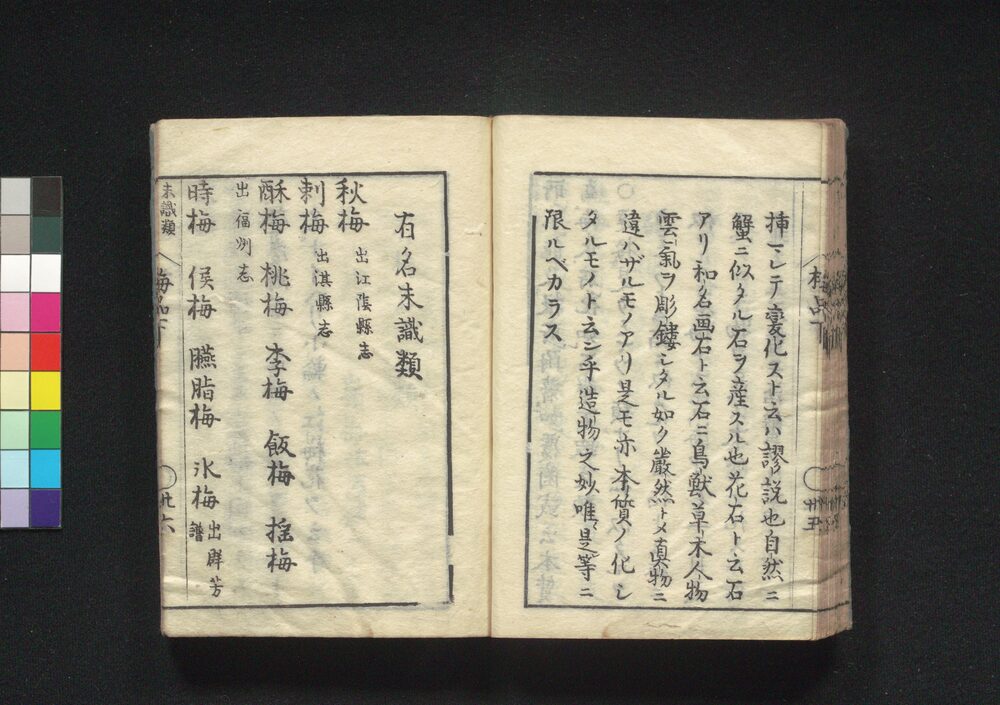 挿マレテ変化スト云ハ謬説也自然ニ
蟹ニ似タル石ヲ産スル也花石ト云石
アリ和名画石ト云石ニ鳥獣草木人物
雲氣ヲ彫鏤シタル如ク嚴然トメ真物ニ
違ハザルモノアリ是モ亦本質ノ化シ
タルモノト云ン乎造物之妙唯是等ニ
限ルベカラス
梅品下
廿五
有名未識類
秋梅 出江陰縣志
刺梅 出淇縣志
酥梅 桃梅 李梅 飯梅 揺梅
出福州志
時梅 候梅 臙脂梅 氷梅 出群芳譜
未識類
梅品下
廿六